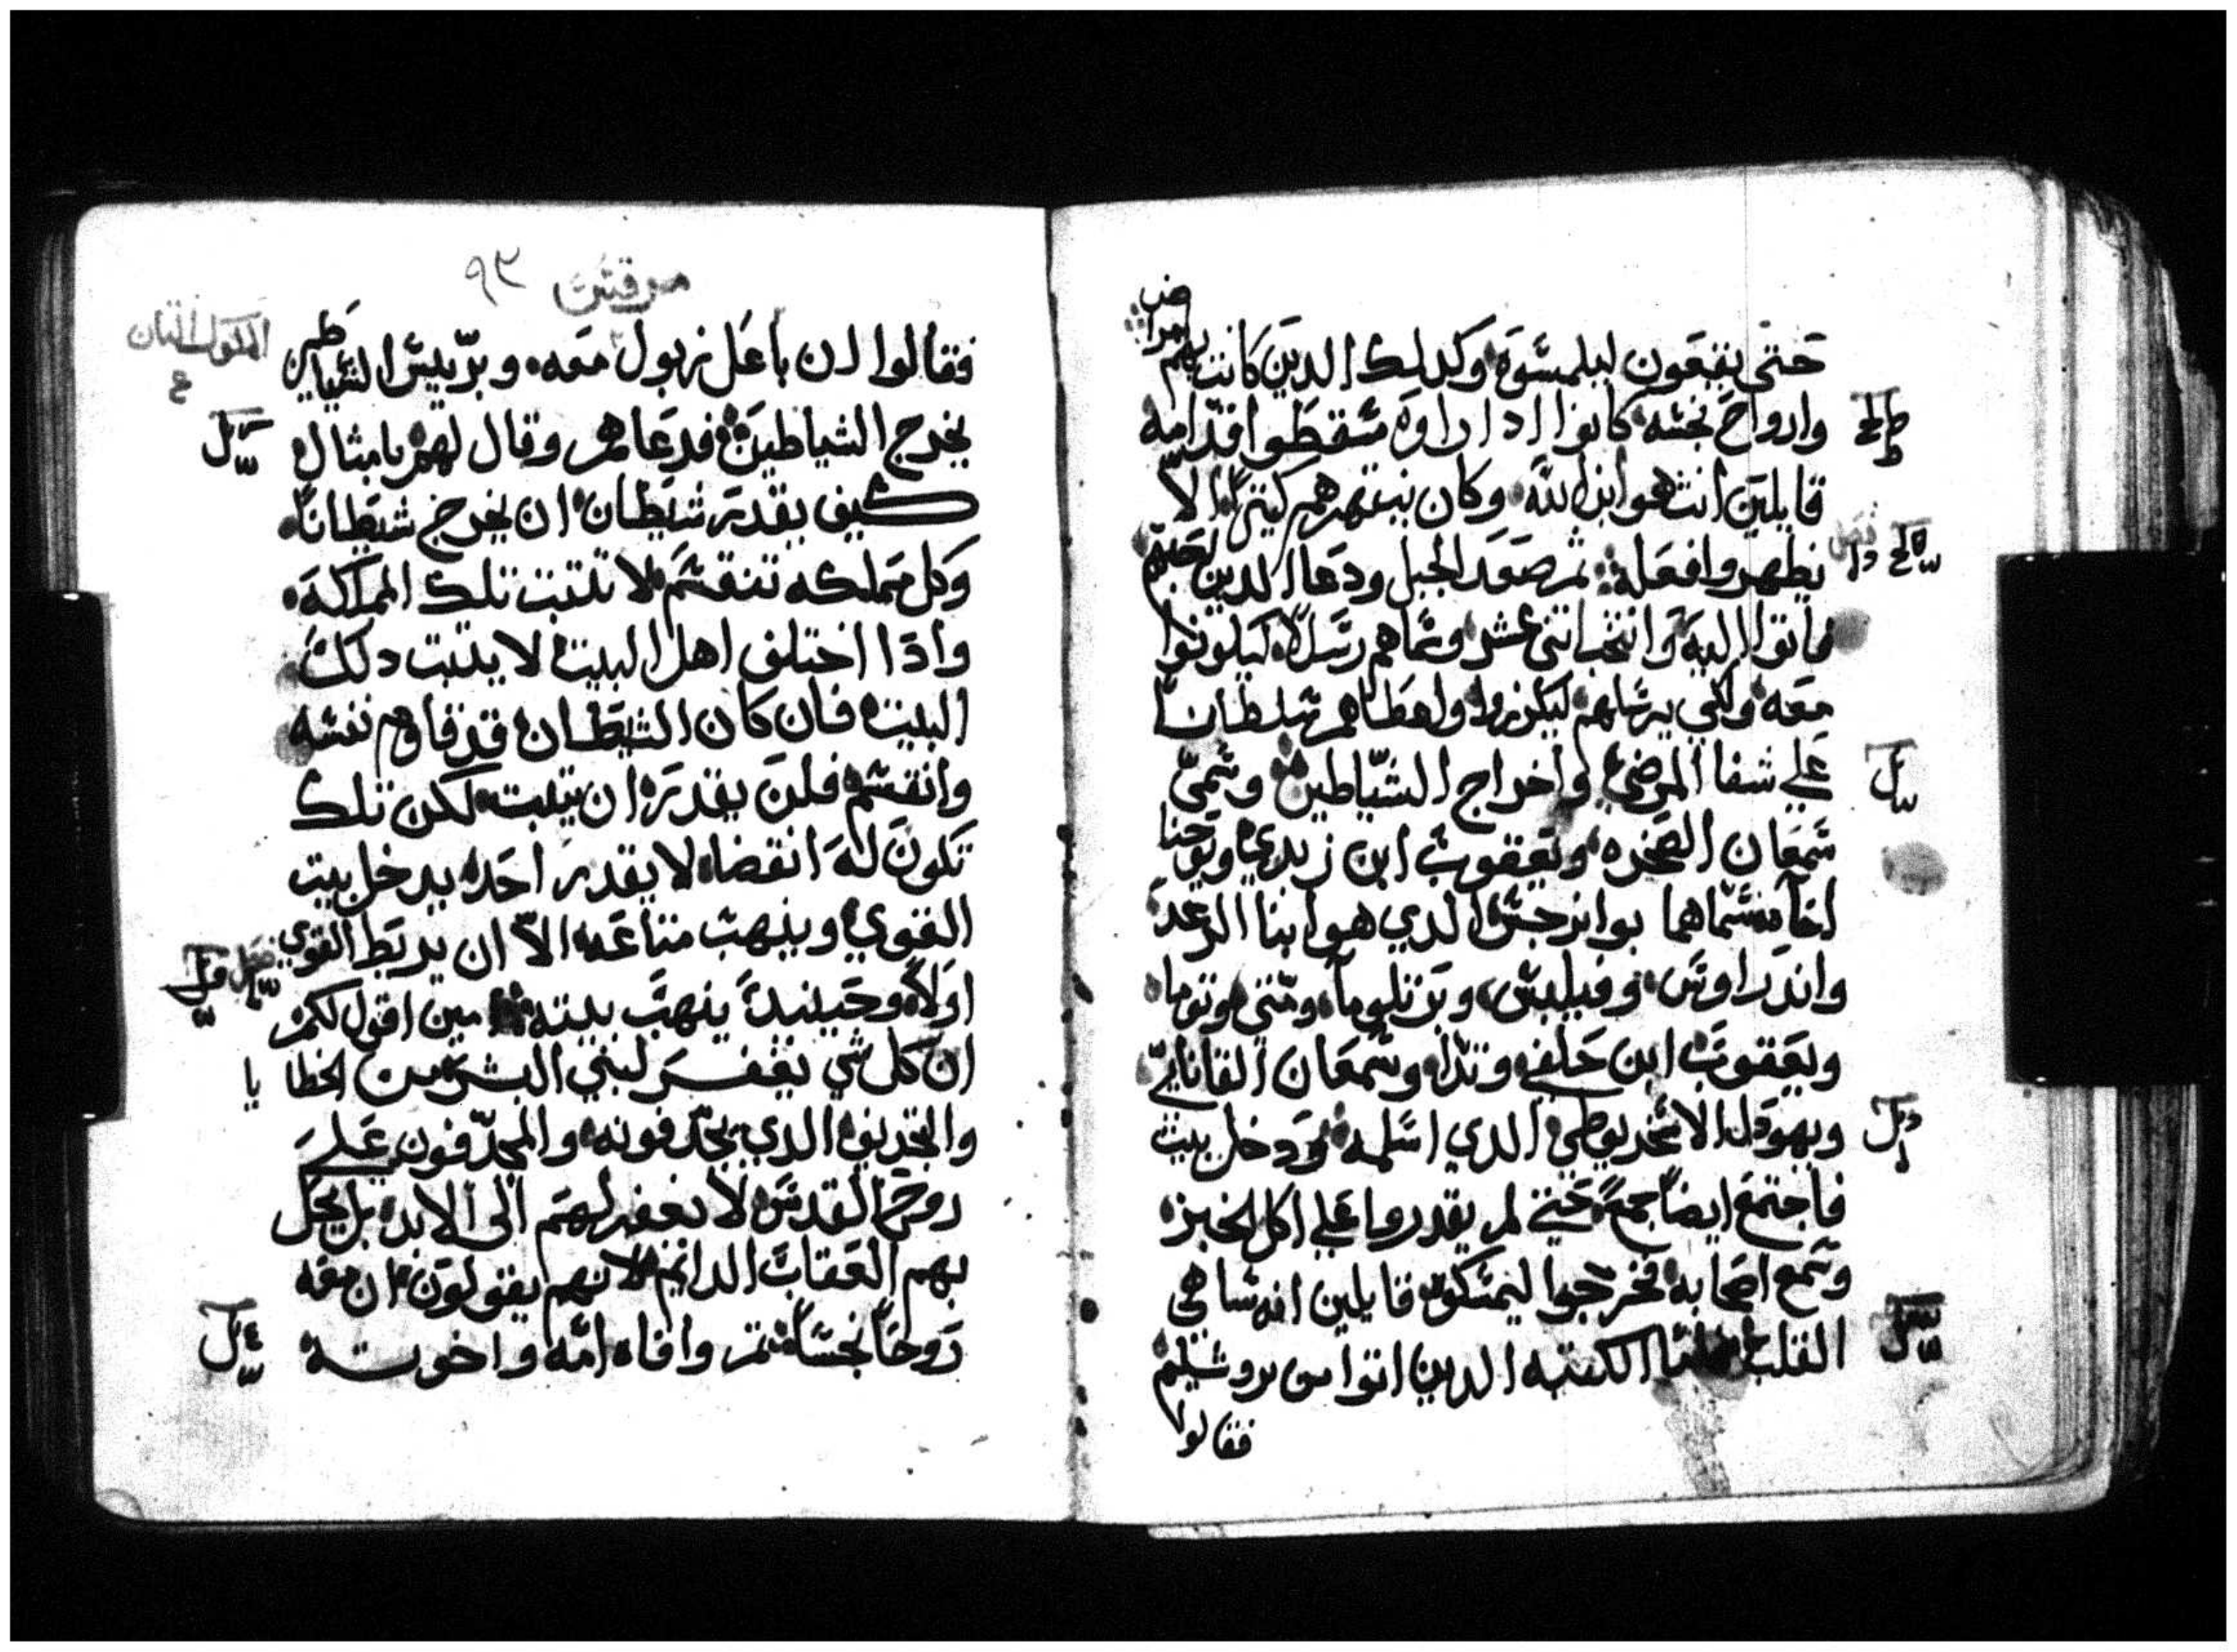 حتى يقعون ليلمسوه وكدلك الدين كانت بهم امراض
وارواح نجسه كانوا ادا راوه سقطوا قدامه
قايلين انت هو ابن الله وكان ينتهرهم كثيرا الا
يظهروا فعله ثم صعد الجبل ودعا الدين
فاتوا اليه وانتخب اثنى عشر وسماهم رسلا ليكونوا
معه ولكي يرسلهم ليكرزوا واعطاهم سلطانا
علي شفا المرضي واخراج الشياطين وسمي
سمعان الصخره ويعقوب ابن زبدي ويوحنا
اخاه فسماهما بوانرجس الدي هو ابنا الرعد
واندراوس وفيلبس وبرتلوما ومتي وتوما
ويعقوب ابن حلفي وتدا وسمعان القاناني
ويهودا الاسخريوطي الدي اسلمه ودخل بيت
فاجتمع ايضا جمع حتي لم يقدروا علي اكل الخبز
وسمع اصحابه فخرجوا ليمسكوه قايلين انه ساهي
القلب فاما الكتبه الدين اتوا من يروشليم
فقالوا
مرقس ٩٣
فقالوا ان باعل زبول معه وبرييس الشياطين
يخرج الشياطين فدعاهم وقال لهم بامثال
كيف يقدر شيطان ان يخرج شيطانا
وكل مملكه تنقسم لا تتبت تلك المملكه
وادا اختلف اهل البيت لا يتبت دلك
البيت فان كان الشيطان قد قاوم نفسه
وانقسم فلن يقدر ان يتبت لكن تلك
تكون له انقضا لا يقدر احد يدخل بيت
القوي وينهب متاعه الا ان يربط القوي
اولا وحينيد ينهب بيته امين اقول لكم
ان كل شي يغفر لبني البشر من الخطايا
والتجديف الدي يجدفونه والمجدفون علي
روح القدس لا يغفر لهم الى الابد بل يحل
بهم العقاب الدايم لانهم يقولون ان معه
روحا نجسا ثم وافاه امه واخوته